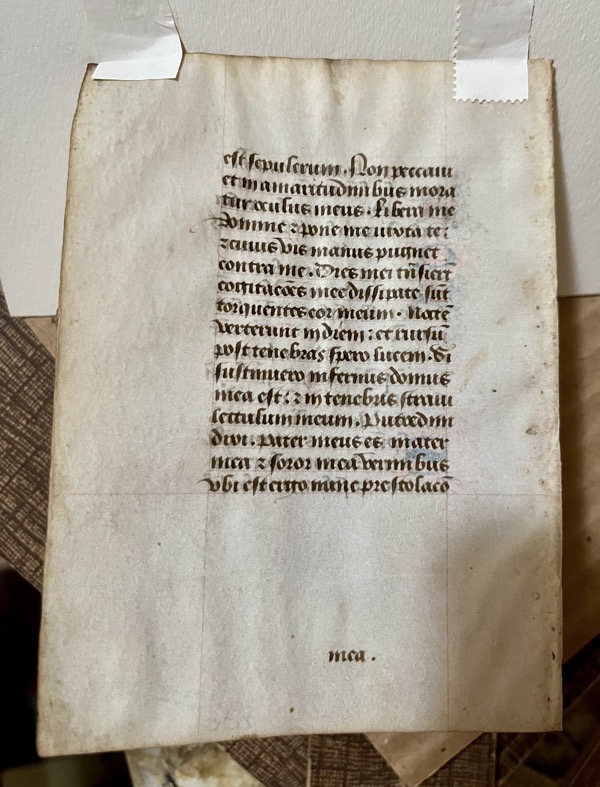 est sepulcrum. Non peccaui
et in amaritudinibus mora
tur oculus meus. Libera me
domine ⁊ pone me iuxta te:
⁊ cuius vis manus pugnet
contra me. Dies mei tn̄sierūt
cogitacōes mee dissipate sūt
torquentes cor meum. Noctē
verterunt in diem: et rursū
post tenebras spero lucem. Si
sustinuero infernus domus
mea est: ⁊ in tenebris straui
lectulum meum. Putredini
dixi. pater meus es mater
mea ⁊ soror mea vermibus
vbi est ergo nunc prestolacō
mea.